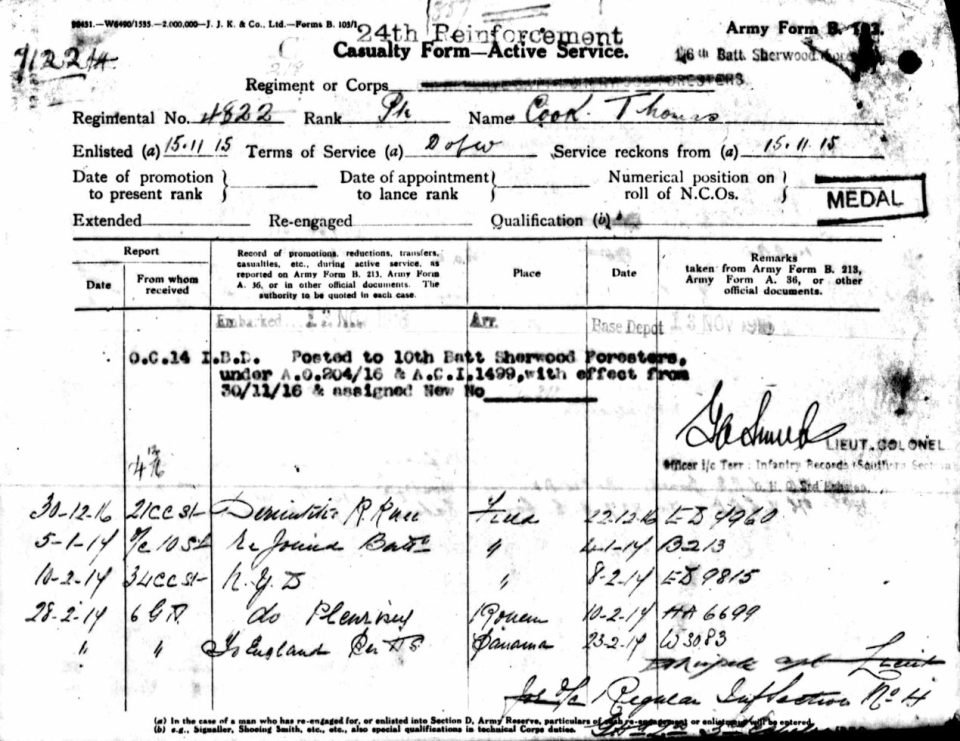 W6490/1535.—2,000,000—J. J. K. & Co., Ltd.—Forms B. 103/1
24th Reinforcement
Army Form B. 103.
Casualty Form—Active Service.
6th Batt. Sherwood
Regiment or Corps
Regimental No. 4822 Rank Name Cook. Thomas
Enlisted (a) 15.11 15 Terms of Service (a) D of W Service reckons from (a) 15.11.15
Date of promotion to present rank
Date of appointment to lance rank
Numerical position on roll of N.C.Os.
MEDAL
Extended Re-engaged Qualification (b)
Report
Date
From whom received
Record of promotions, reductions, transfers, casualties, etc., during active service, as reported on Army Form B. 213, Army Form A. 36, or in other official documents. The authority to be quoted in each case.
Place
Date
Remarks taken from Army Form B. 213, Army Form A. 36, or other official documents.
Embarked Arr. Base Depot 13 NOV
O.C.14 I.B.D. Posted to 10th Batt Sherwood Foresters,
under A.O.204/16 & A.C.I.1499, with effect from
30/11/16 & assigned New No
LIEUT. COLONEL
Officer i/c Terr: Infantry Records (Southern
30-12-16 21 CC St R Knee Field 22-12-16 ED 4960
5-1-17 O/C 10 Joined Battn " 4-1-17 B213
10-2-17 34 CC St N.Y.D " 8-2-17 ED 9815
28-2-17 6 G.H. do Pleurisy Rouen 10-2-17 HA 6699
" " To England Per H.S. Panama 23-2-17 W3083
Lieut
Regular Inf Section No 4
(a) In the case of a man who has re-engaged for, or enlisted into Section D, Army Reserve, particulars of such re-engagement or enlistment will be entered.
(b) e.g., Signaller, Shoeing Smith, etc., etc., also special qualifications in technical Corps duties.